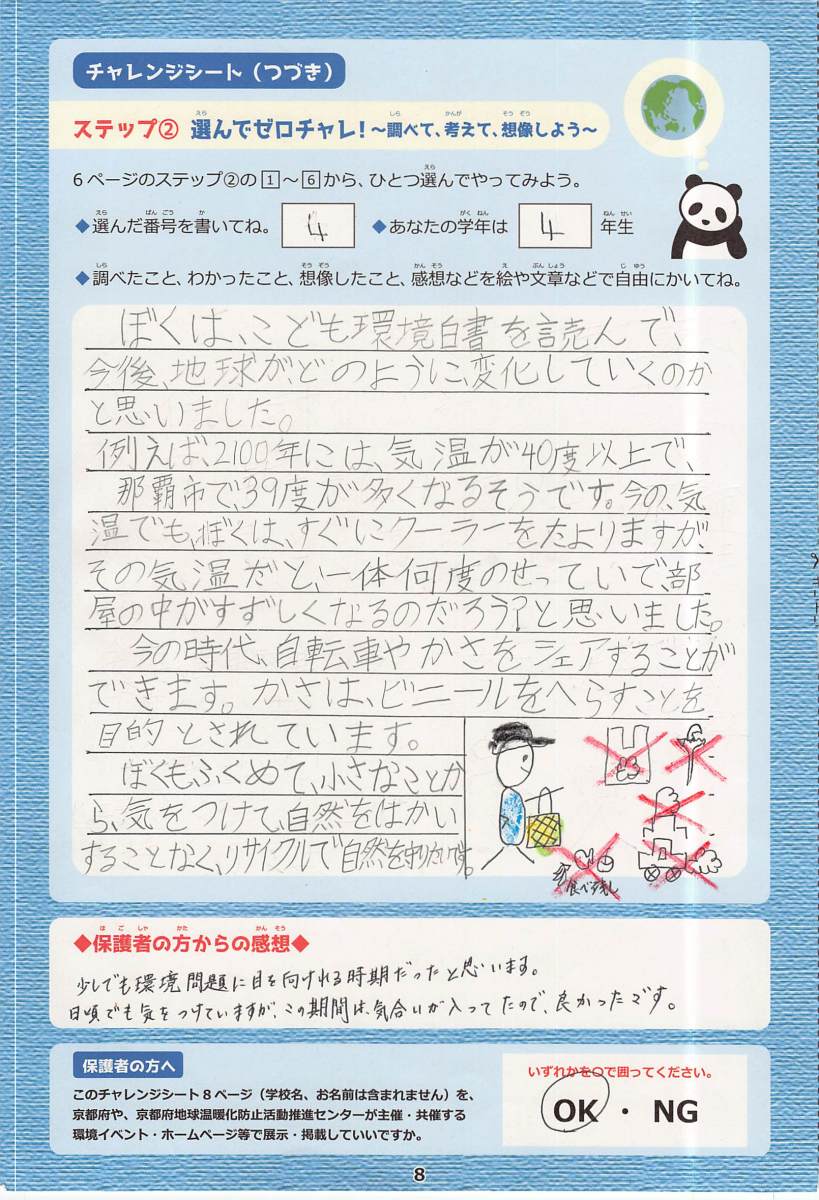 チャレンジシート（つづき）
ステップ② 選んでゼロチャレ！～調べて、考えて、想像しよう～
6ページのステップ②の1～6から、ひとつ選んでやってみよう。
◆選んだ番号を書いてね。 4 ◆あなたの学年は 4 年生
◆調べたこと、わかったこと、想像したこと、感想などを絵や文章などで自由にかいてね。
ぼくは、こども環境白書を読んで、
今後、地球が、どのように、変化していくのか
と思いました。
例えば、2100年には、気温が40度以上で、
那覇市で、39度が多くなるそうです。今の、気
温でも、ぼくは、すぐにクーラーをたよりますが
その気温だと、一体何度のせっていで、部
屋の中がすずしくなるのだろう？と思いました。
今の時代、自転車やかさをシェアすることが
できます。かさは、ビニールをへらすことを
目的とされています。
ぼくもふくめて、小さなことか
ら、気をつけて、自然をはかい
することなく、リサイクルで自然を守りたいです。
食べ残し
◆保護者の方からの感想◆
少しでも環境問題に目を向けれる時期だったと思います。
日頃でも気をつけていますが、この期間は、気合いが入ってたので、良かったです。
保護者の方へ
このチャレンジシート8ページ（学校名、お名前は含まれません）を、
京都府や、京都府地球温暖化防止活動推進センターが主催・共催する
環境イベント・ホームページ等で展示・掲載していいですか。
いずれかを〇で囲ってください。
OK ・ NG
8